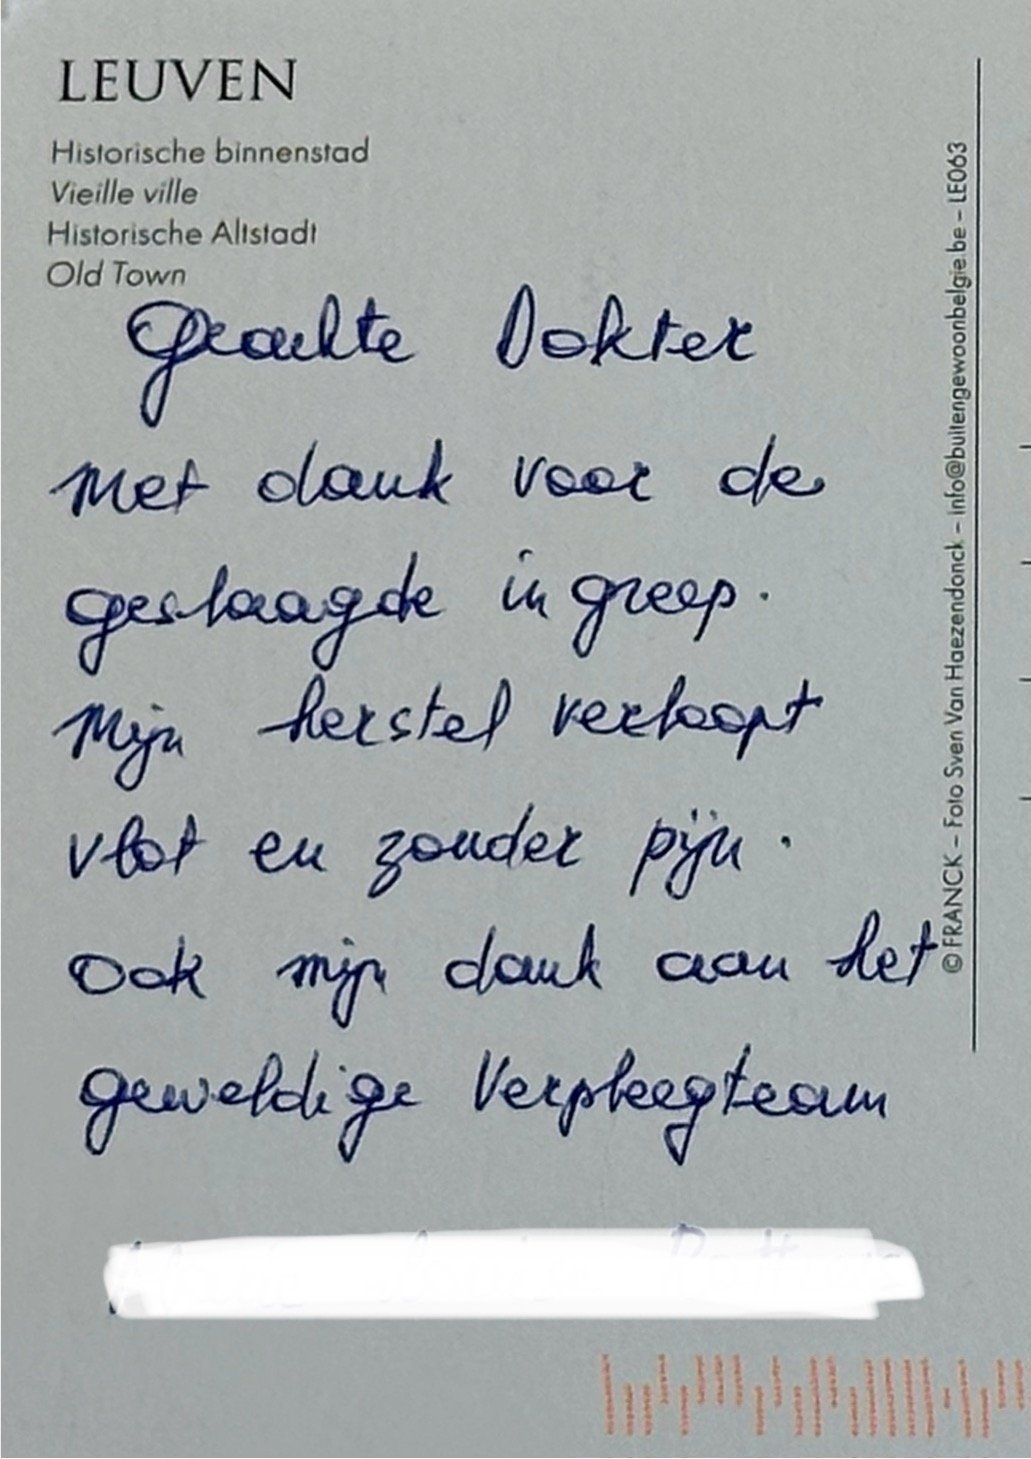 LEUVEN
Historische binnenstad
Vieille ville
Historische Altstadt
Old Town
Geachte Dokter
Met dank voor de
geslaagde ingreep.
Mijn herstel verloopt
vlot en zonder pijn.
Ook mijn dank aan het
geweldige Verpleegteam
© FRANCK – Foto Sven Van Haezendonck – info@buitengewoonbelgie.be – LE063